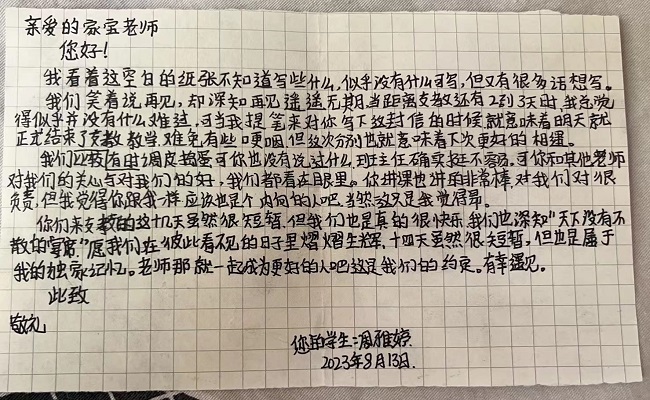 亲爱的家宝老师
您好!
我看着这空白的纸张不知道写些什么,似乎没有什么可写,但又有很多话想写。
我们笑着说再见,却深知再见遥遥无期,当距离支教还有2到3天时,我总觉
得似乎并没有什么难过,可当我提笔来对你写下这封信的时候就意味着明天就
正式结束了支教教学,难免有些哽咽,但这次分别也就意味着下次更好的相逢。
我们班有时调皮捣蛋可你也没有说过什么,班主任确实挺不容易。可你和其他老师
对我们的关心与对我们的好,我们都看在眼里。你讲课也讲的非常棒,对我们对很
负责,但我觉得你跟我一样应该也是个内向的人吧,当然这只是我觉得罪。
你们来支教的这十几天虽然很短暂,但我们也是真的很快乐,我们也深知"天下没有不
散的宴席"愿我们在彼此看不见的日子里熠熠生辉,十四天虽然很短暂,但也是属于
我的独家记忆。老师那就一起成为更好的人吧这是我们的约定。有幸遇见。
此致
敬礼
您的学生:周雅婷
2023年8月13日.